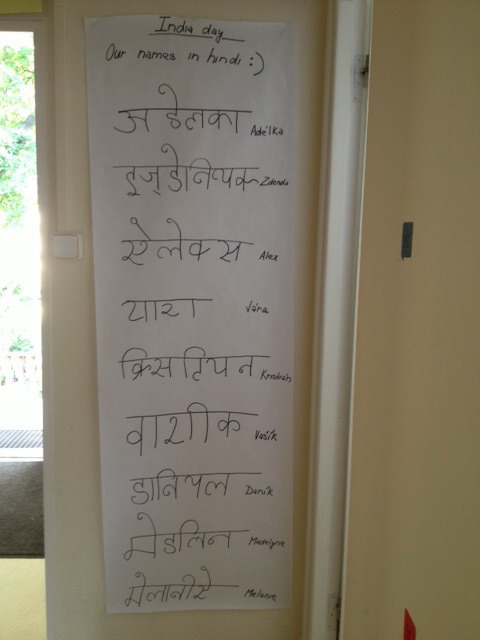 India day
Our names in hindi :)
अडेलका Adélka
इज़्डेनियक Zdenda
ऐलेक्स Alex
यारा Jára
क्रिसटियन
वाशीक Vašík
डानियल Daník
मेडलिन Madelyne
मेलानीऐ Melanie